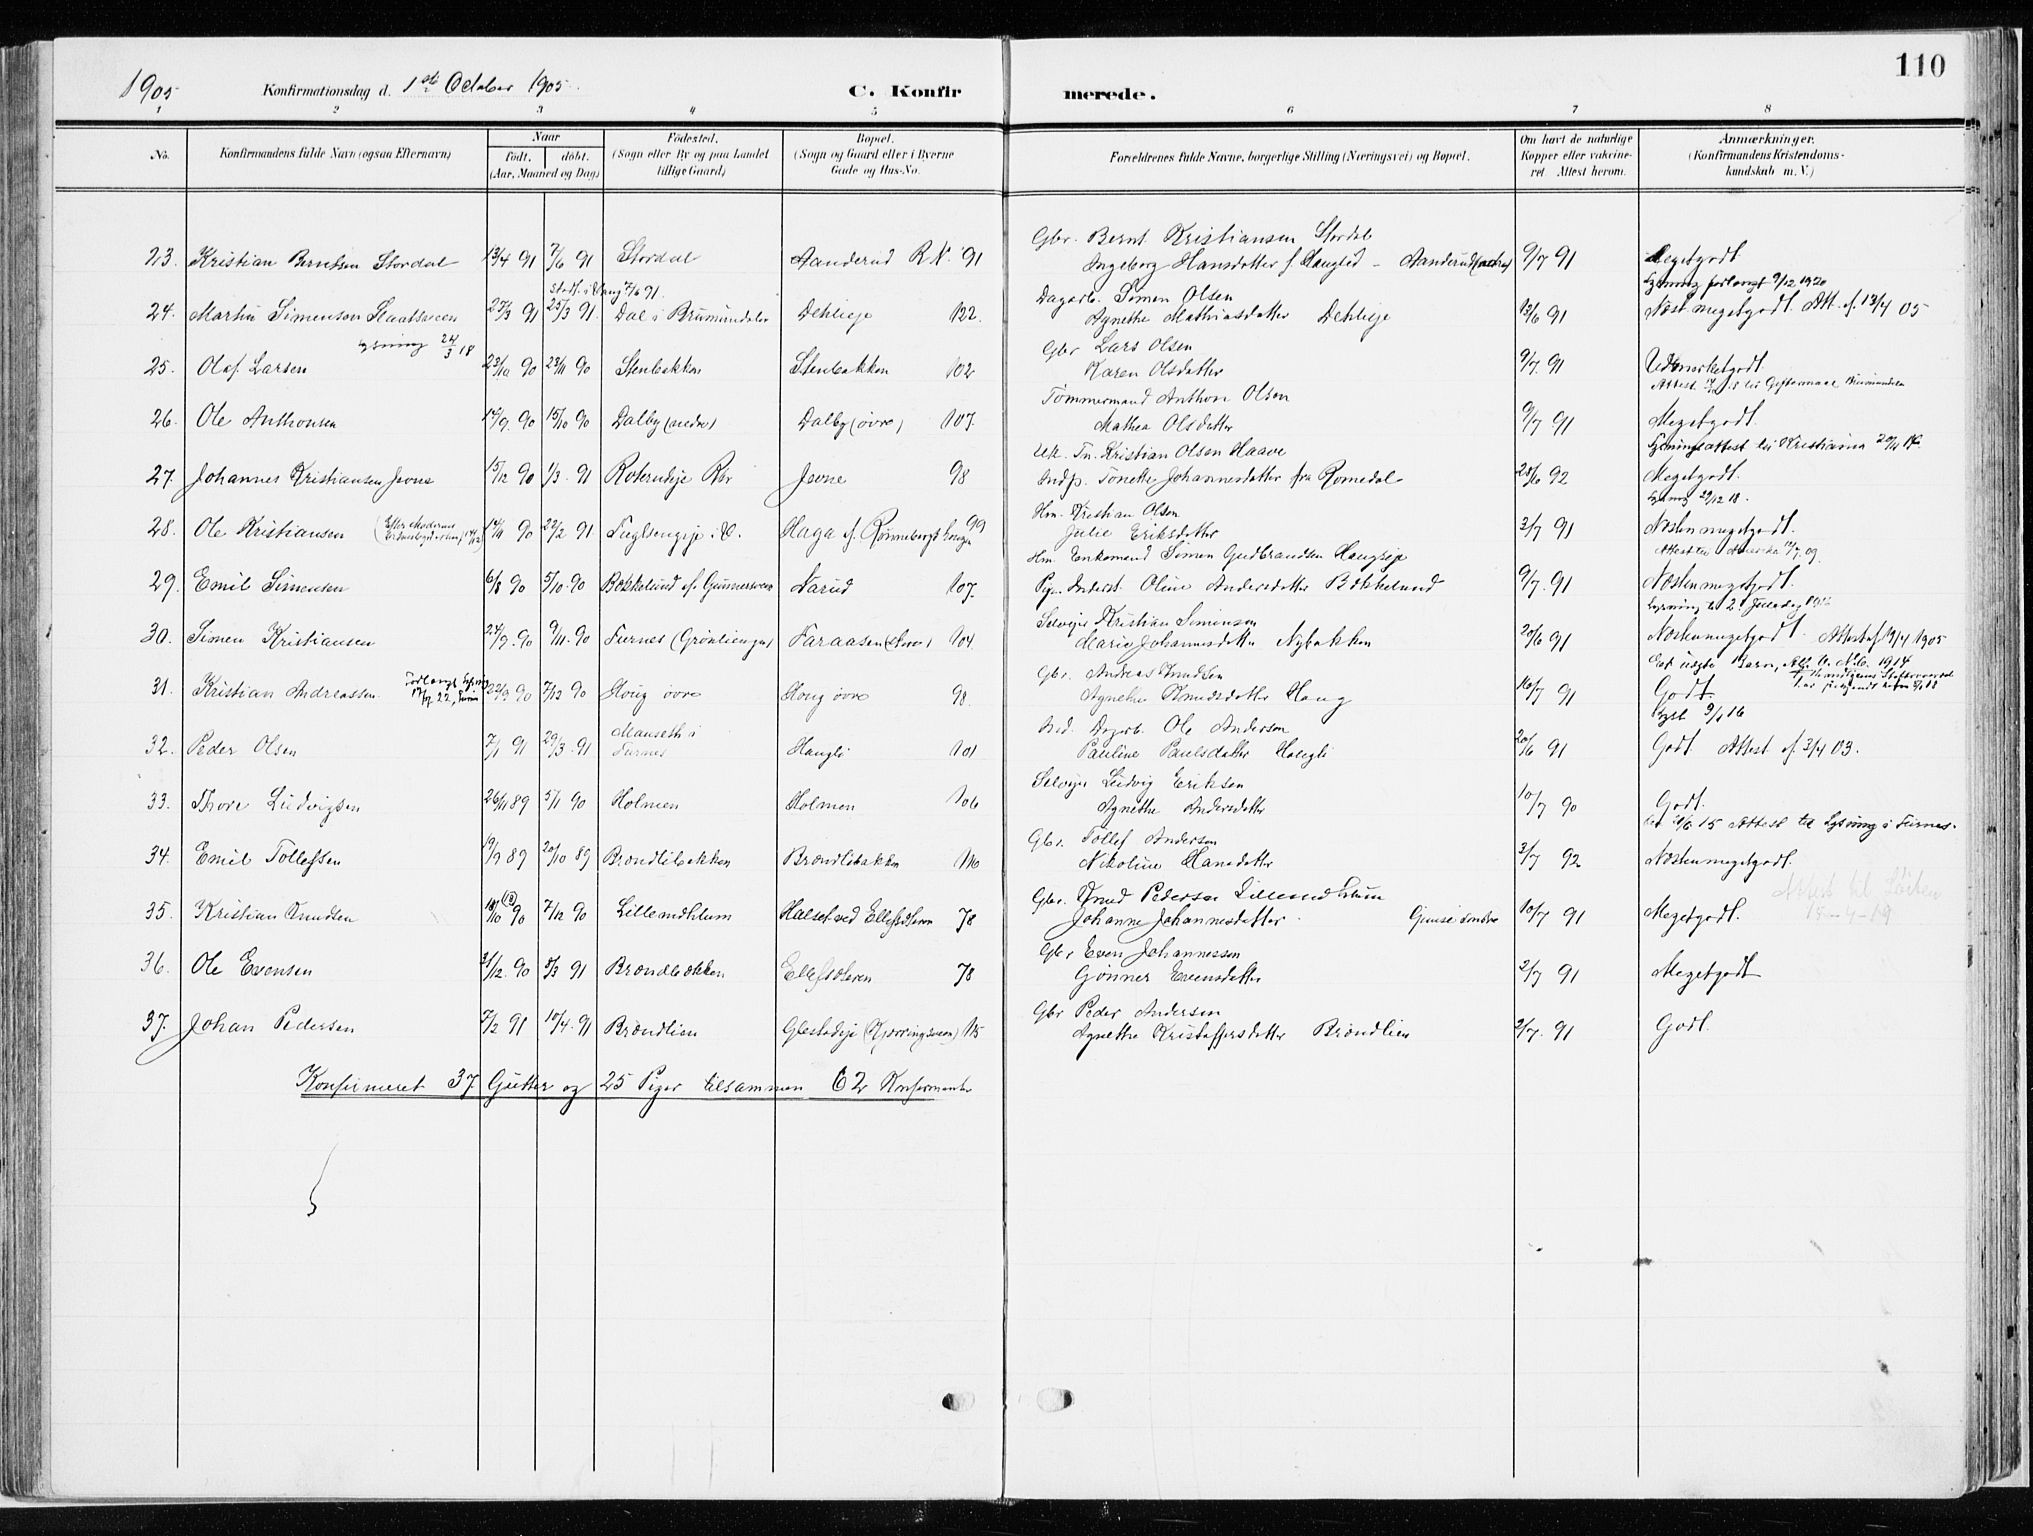 110
1905 Konfirmationsdag d. 1ste October 1905. C. Konfirmerede.
1 2 3 4 5 6 7 8
No. Konfirmandens fulde Navn (ogsaa Efternavn) Naar født. døbt. (Aar, Maaned og Dag) Fødested. (Sogn eller By og paa Landet tillige Gaard) Bopæl. (Sogn og Gaard eller i Byerne Gade og Hus-No. Forældrenes fulde Navne, borgerlige Stilling (Næringsvei) og Bopæl. Om havt de naturlige Kopper eller vakcineret Attest herom. Anmærkninger. (Konfirmandens Kristendomskundskab m. V.)
Gbr. Bernt Kristiansen Stordal
23. Kristian Berntsen Stordal 13/4 91 7/6 91 Stordal Aanderud R.N. 91 Ingeborg Hansdatter f Hauglid - Aanderud 9/7 91 Megetgodt
Lysning forlangt 9/12 1920
Dagarb. Simen Olsen
24. Martin Simensen 27/3 91 25/3 91 Dal i Brumunddalen Dehlieje 122. Agnethe Mathiasdatter Dehlieje 12/6 91 Næst megetgodt Att. f. 13/4 05
Lysning 24/3 18
Gbr Lars Olsen
25. Olaf Larsen 23/10 90 23/11 90 Stenbakken Stenbakken 102 Karen Olsdatter 9/7 91 Udmerketgodt.
Tømmermand Anthon Olsen
26. Ole Anthonsen 14/9. 90 15/10 90 Dalby (nedre) Dalby (øvre) 107. Mathea Olsdatter 9/7 91 Megetgodt.
Lysningsattest til Kristiania
Uk. Tn. Kristian Olsen Haave
27. Johannes Kristiansen Jevne 15/12 90 1/3. 91 Roterudeje Rbr Jevne 98 Indp. Tonette Johannesdatter fra Romedal 28/6 92 Megetgodt.
Lysning 29/12 18.
Hm. Kristian Olsen
28. Ole Kristiansen 14/11 90 22/2 91 Fuglsengeje i V. Haga f. Rønnebergs haug 99 Julie Eriksdatter 3/7 91 Næsten megetgodt.
Attest til Amerika 09
Hm Enkemand Simen Gudbrandsen Haugseje
29. Emil Simensen 6/8 90 5/10 90 Bekkelund Narud 107. Pige Oline Andersdatter Bekkelund 9/7. 91 Næsten megetgodt.
Lysning til 2 Juledag
Selvejer Kristian Simensen
30. Simen Kristiansen 24/9. 90 9/11. 90 Furnes (Grønlienga) Faraasen (store) 104. Marie Johannesdatter Nybakken 20/6 91 Næsten megetgodt. Attest 19/4 1905
Gbr. Andreas Knudsen
31. Kristian Andreassen. 22/9 90 7/12 90 Houg øvre Houg øvre 98. Agnethe Knudsdatter Haug 10/7 91 Godt.
Lyst 9/1 16
Ind. Dagarb. Ole Andersen
32. Peder Olsen 7/1 91 29/3. 91 Mauseth i Furnes Haugli 101 Pauline Paulsdatter Haugli 20/6 91 Godt Attest f. 3/4 03.
Selvejer Ludvig Eriksen
33. Thore Ludvigsen 26/11 89 5/1 90 Holmen Holmen 106 Agnethe Andersdatter 10/7 90 Godt.
15 Attest til Lysning i Furnes.
Gbr. Tollef Andersen
34. Emil Tollefsen 19/9 89 20/10 89 Brøndlibakken Brøndlibakken 110 Nikoline Hansdatter 3/7 92 Næsten megetgodt.
Attest til Løiten
Gbr. Knud Pedersen Lillemdklum
35. Kristian Knudsen 18/10 90 7/12 90 Lillemdklum Halset ved Ellefsæteren 78 Johanne Johannesdatter 10/7 91 Megetgodt. 18-4-19
Gbr Even Johannessen
36. Ole Evensen 31/12. 90 8/3 91 Brøndbakken Ellefsæteren 78 Gønner Evensdatter 2/7 91 Megetgodt
Gbr Peder Andersen
37. Johan Pedersen 7/2 91 10/4. 91 Brøndlien Glestadeje 115 Agnethe Kristoffersdatter Brøndlien 2/7. 91 Godt.
Konfirmeret 37 Gutter og 25 Piger tilsammen 62 Konfirmanter